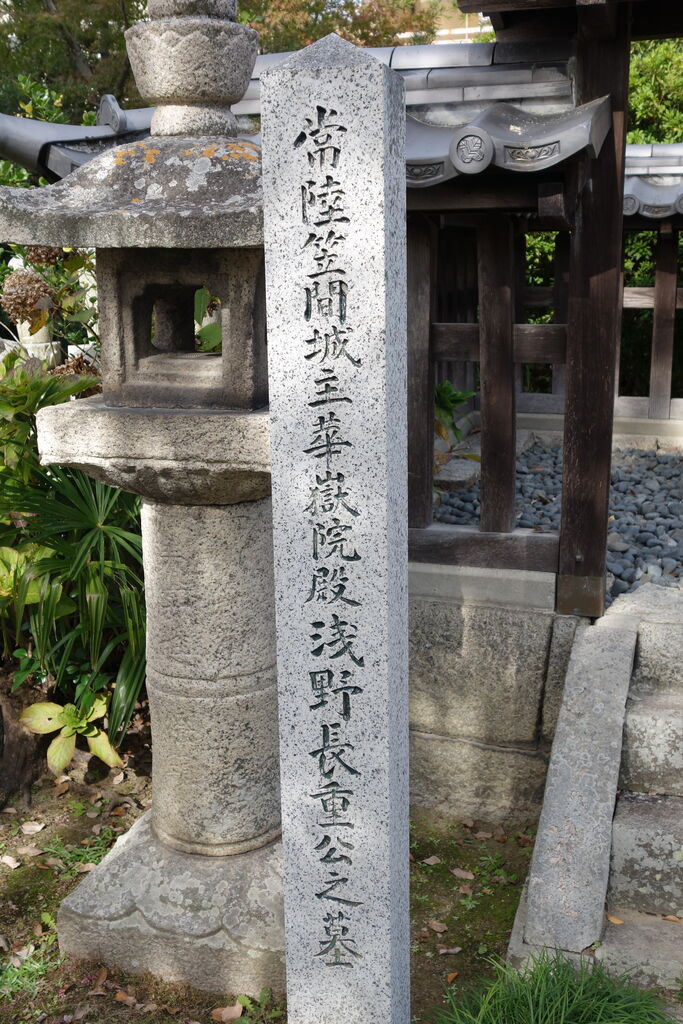 常陸笠間城主華嶽院殿浅野長重公之墓